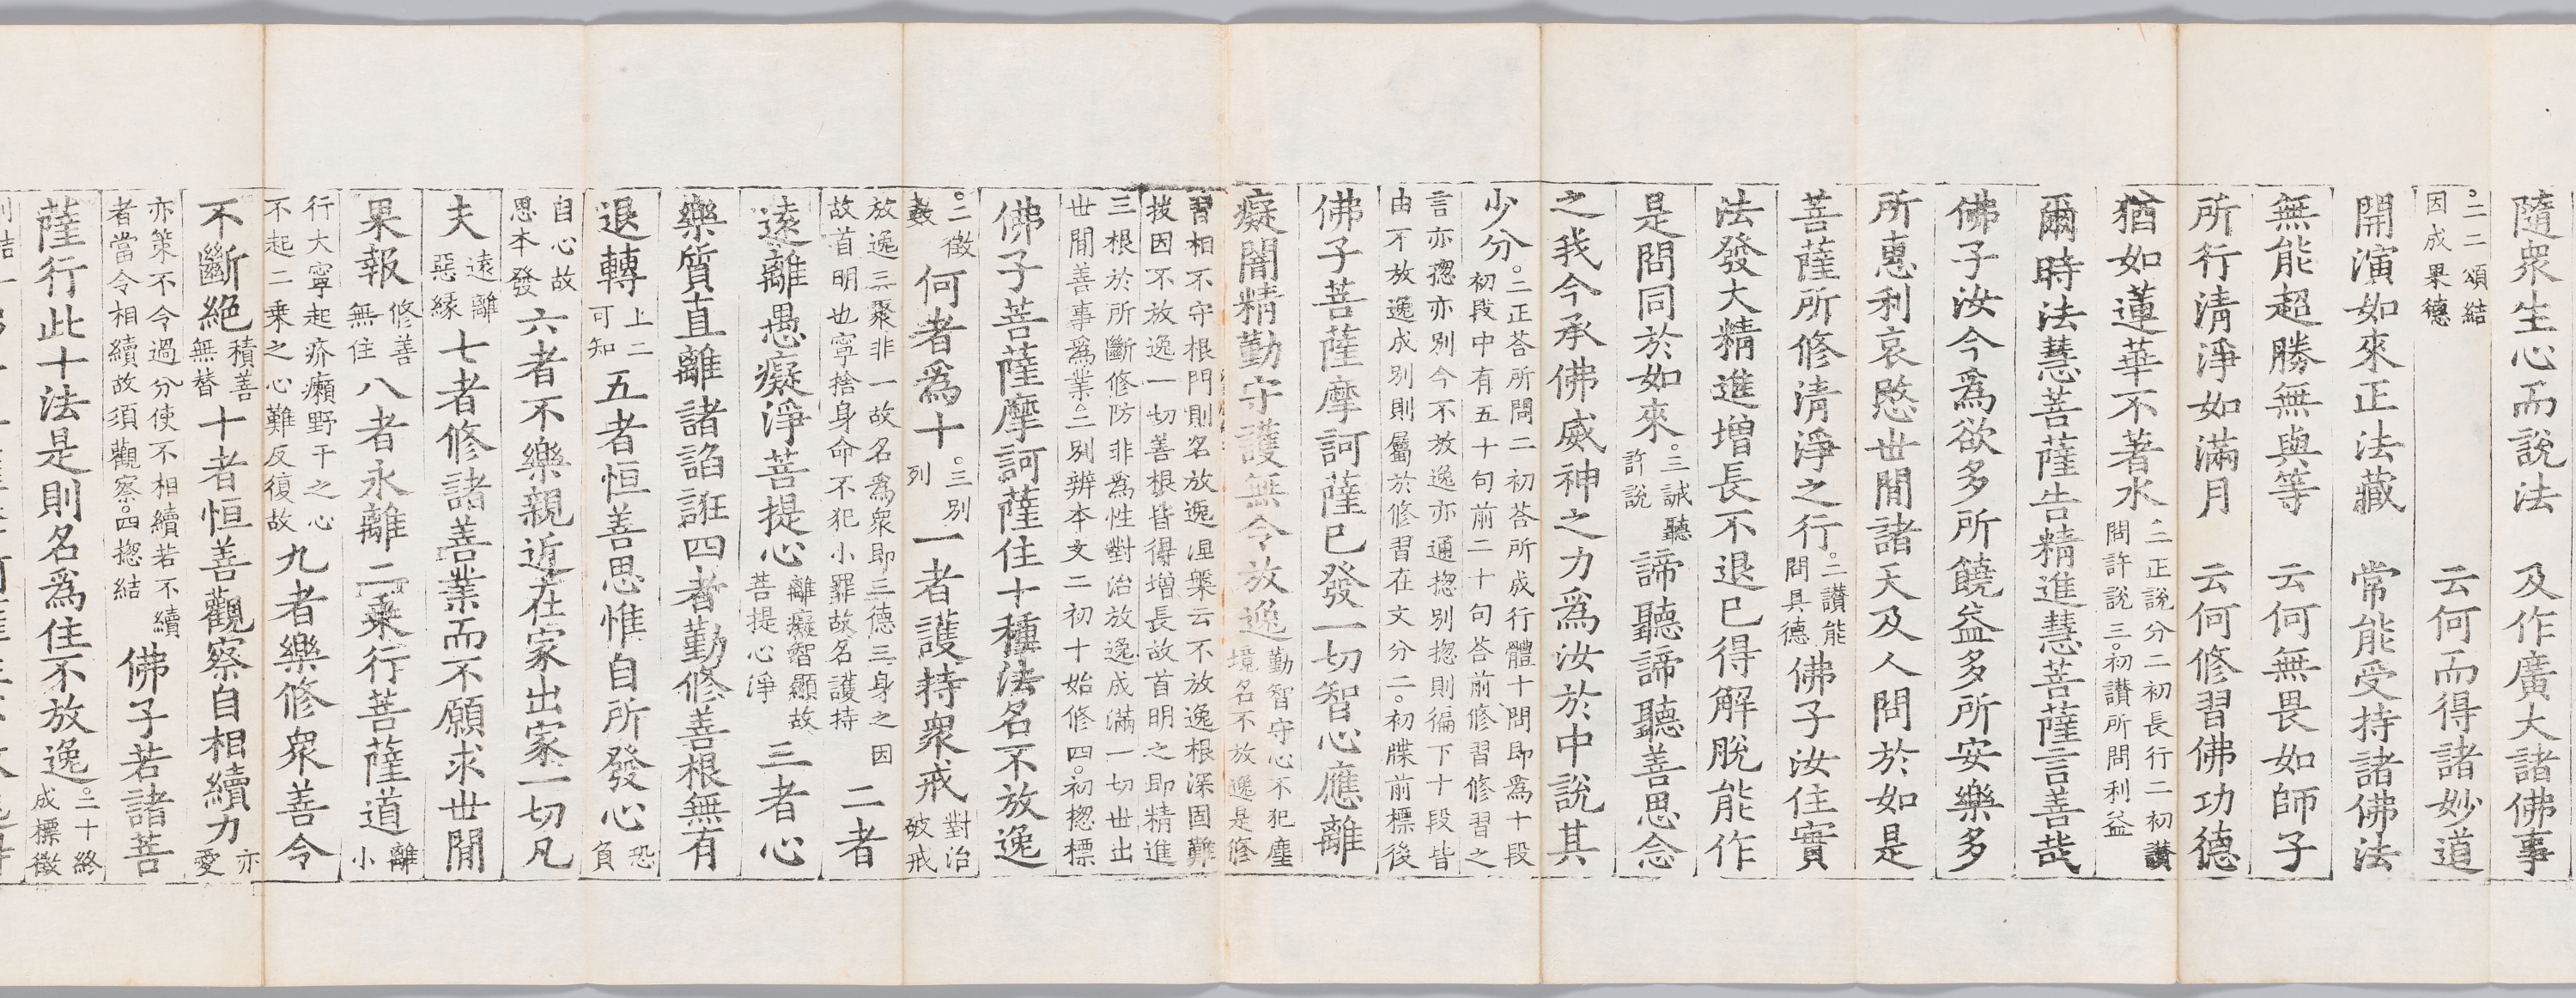 隨衆生心而說法　及作廣大諸佛事
。二二頌結
因成果德
云何而得諸妙道
開演如來正法藏　常能受持諸佛法
無能超勝無與等　云何無畏如師子
所行清淨如滿月　云何修習佛功德
猶如蓮華不著水
二正說分二初長行二初讃
問許說三。初讃所問利益
爾時法慧菩薩告精進慧菩薩言善哉
佛子汝今爲欲多所饒益多所安樂多
所惠利哀愍世間諸天及人問於如是
菩薩所修清淨之行
。二讃能
問具德
佛子汝住實
法發大精進增長不退已得解脫能作
是問同於如來
。三誡聽
許說
諦聽諦聽善思念
之我今承佛威神之力爲汝於中說其
少分
。二正荅所問二初荅所成行體十問即爲十段
初段中有五十句前二十句荅前修習修習之
言亦揔亦別今不放逸亦通揔別揔則徧下十段皆
由不放逸成別則屬於修習在文分二。初牒前標後
佛子菩薩摩訶薩已發一切智心應離
癡闇精勤守護無令放逸
勤智守心不犯塵
境名不放逸是修
習相不守根門則名放逸涅槃云不放逸根深固難
拔因不放逸一切善根皆得增長故首明之即精進
三根於所斷修防非爲性對治放逸成滿一切世出
世間善事爲業。二別辨本文二初十始修四。初揔標
佛子菩薩摩訶薩住十種法名不放逸
。二徵
數
何者爲十
。三別
列
一者護持衆戒
對治
破戒
放逸三聚非一故名爲衆即三德三身之因
故首明也寧捨身命不犯小罪故名護持
二者
遠離愚癡淨菩提心
離癡智顯故
菩提心淨
三者心
樂質直離諸諂誑四者勤修善根無有
退轉
上二
可知
五者恒善思惟自所發心
恐
負
自心故
思本發
六者不樂親近在家出家一切凡
夫
遠離
惡緣
七者修諸善業而不願求世間
果報
修善
無住
八者永離二乘行菩薩道
離
小
行大寧起疥癩野干之心
不起二乘之心難反復故
九者樂修衆善令
不斷絕
積善
無替
十者恒善觀察自相續力
亦
愛
亦策不令過分使不相續若不續
者當令相續故須觀察。四揔結
佛子若諸菩
薩行此十法是則名爲住不放逸
。二十終
成標徵